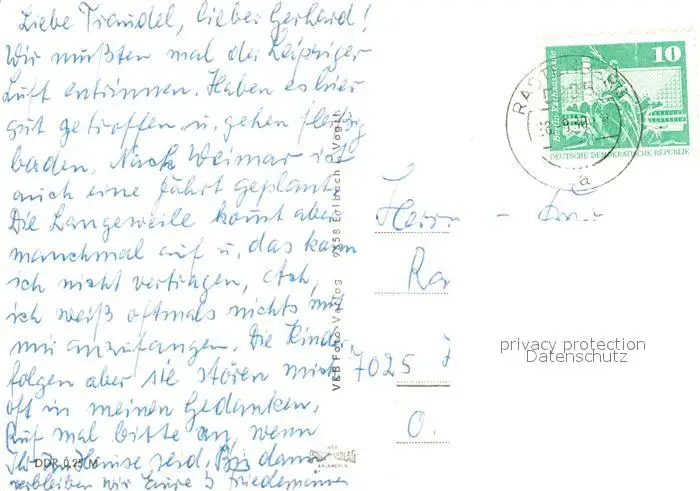 Liebe Traudel, lieber Gerhard!
Wir mußten mal der Leipziger
Luft entrinnen. Haben es hier
gut getroffen u. gehen fleißig
baden. Nach Weimar ist
auch eine Fahrt geplant.
Die Langeweile komt aber
manchmal auf u. das kann
ich nicht vertragen, Ach,
ich weiß oftmals nichts mit
mir anzufangen. Die Kinder
folgen aber sie stören mich
oft in meinen Gedanken.
Ruf mal bitte an, wenn
Ihr zu Hause seid. Bis dann
verbleiben wir Eure 3 Friedemänner
DDR 0,25 M
VEB Foto-Verlag 9658 Erlbach Vogtl
10
Berlin-Rathausstraße
DEUTSCHE DEMOKRATISCHE REPUBLIK
a
Herrn
7025
O.
privacy protection
Datenschutz